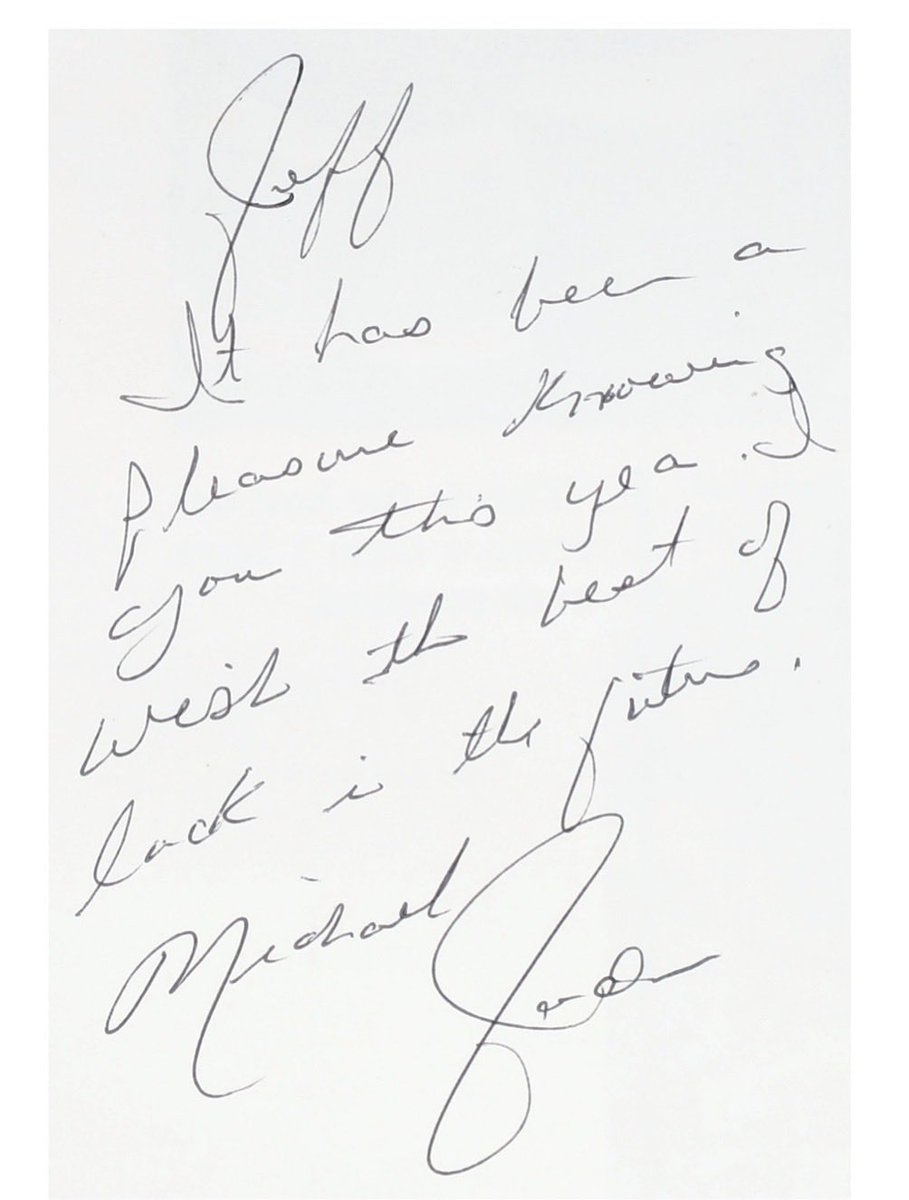 Jeff
It has been a
pleasure knowing
you this year. I
wish the best of
luck in the future.
Michael Jordan